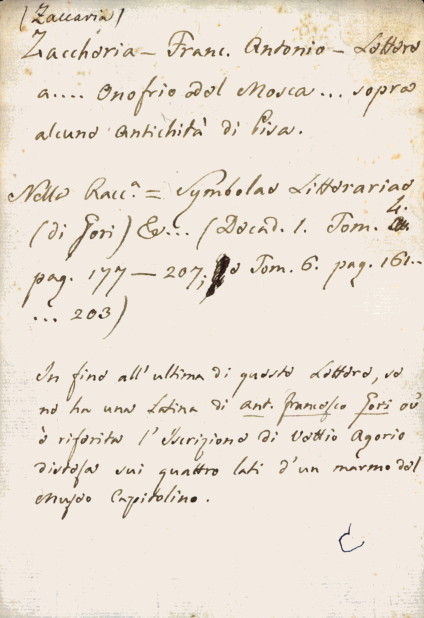 (Zaccaria)
Zaccheria - Franc. Antonio - Lettere
a.... Onofrio Del Mosca... sopra
alcune Antichità di Pisa.
Nella Racc.ª = Symbolae Litterariae
(di Gori) &... (Decad. 1. Tom. 4.
pag. 177 - 207; e Tom. 6. pag. 161..
... 203)
In fine all'ultima di queste Lettere, se
ne ha una Latina di Ant. Francesco Gori ov'
è riferita l'Iscrizione di Vettio Agorio
distesa sui quattro lati d'un marmo del
Museo Capitolino.